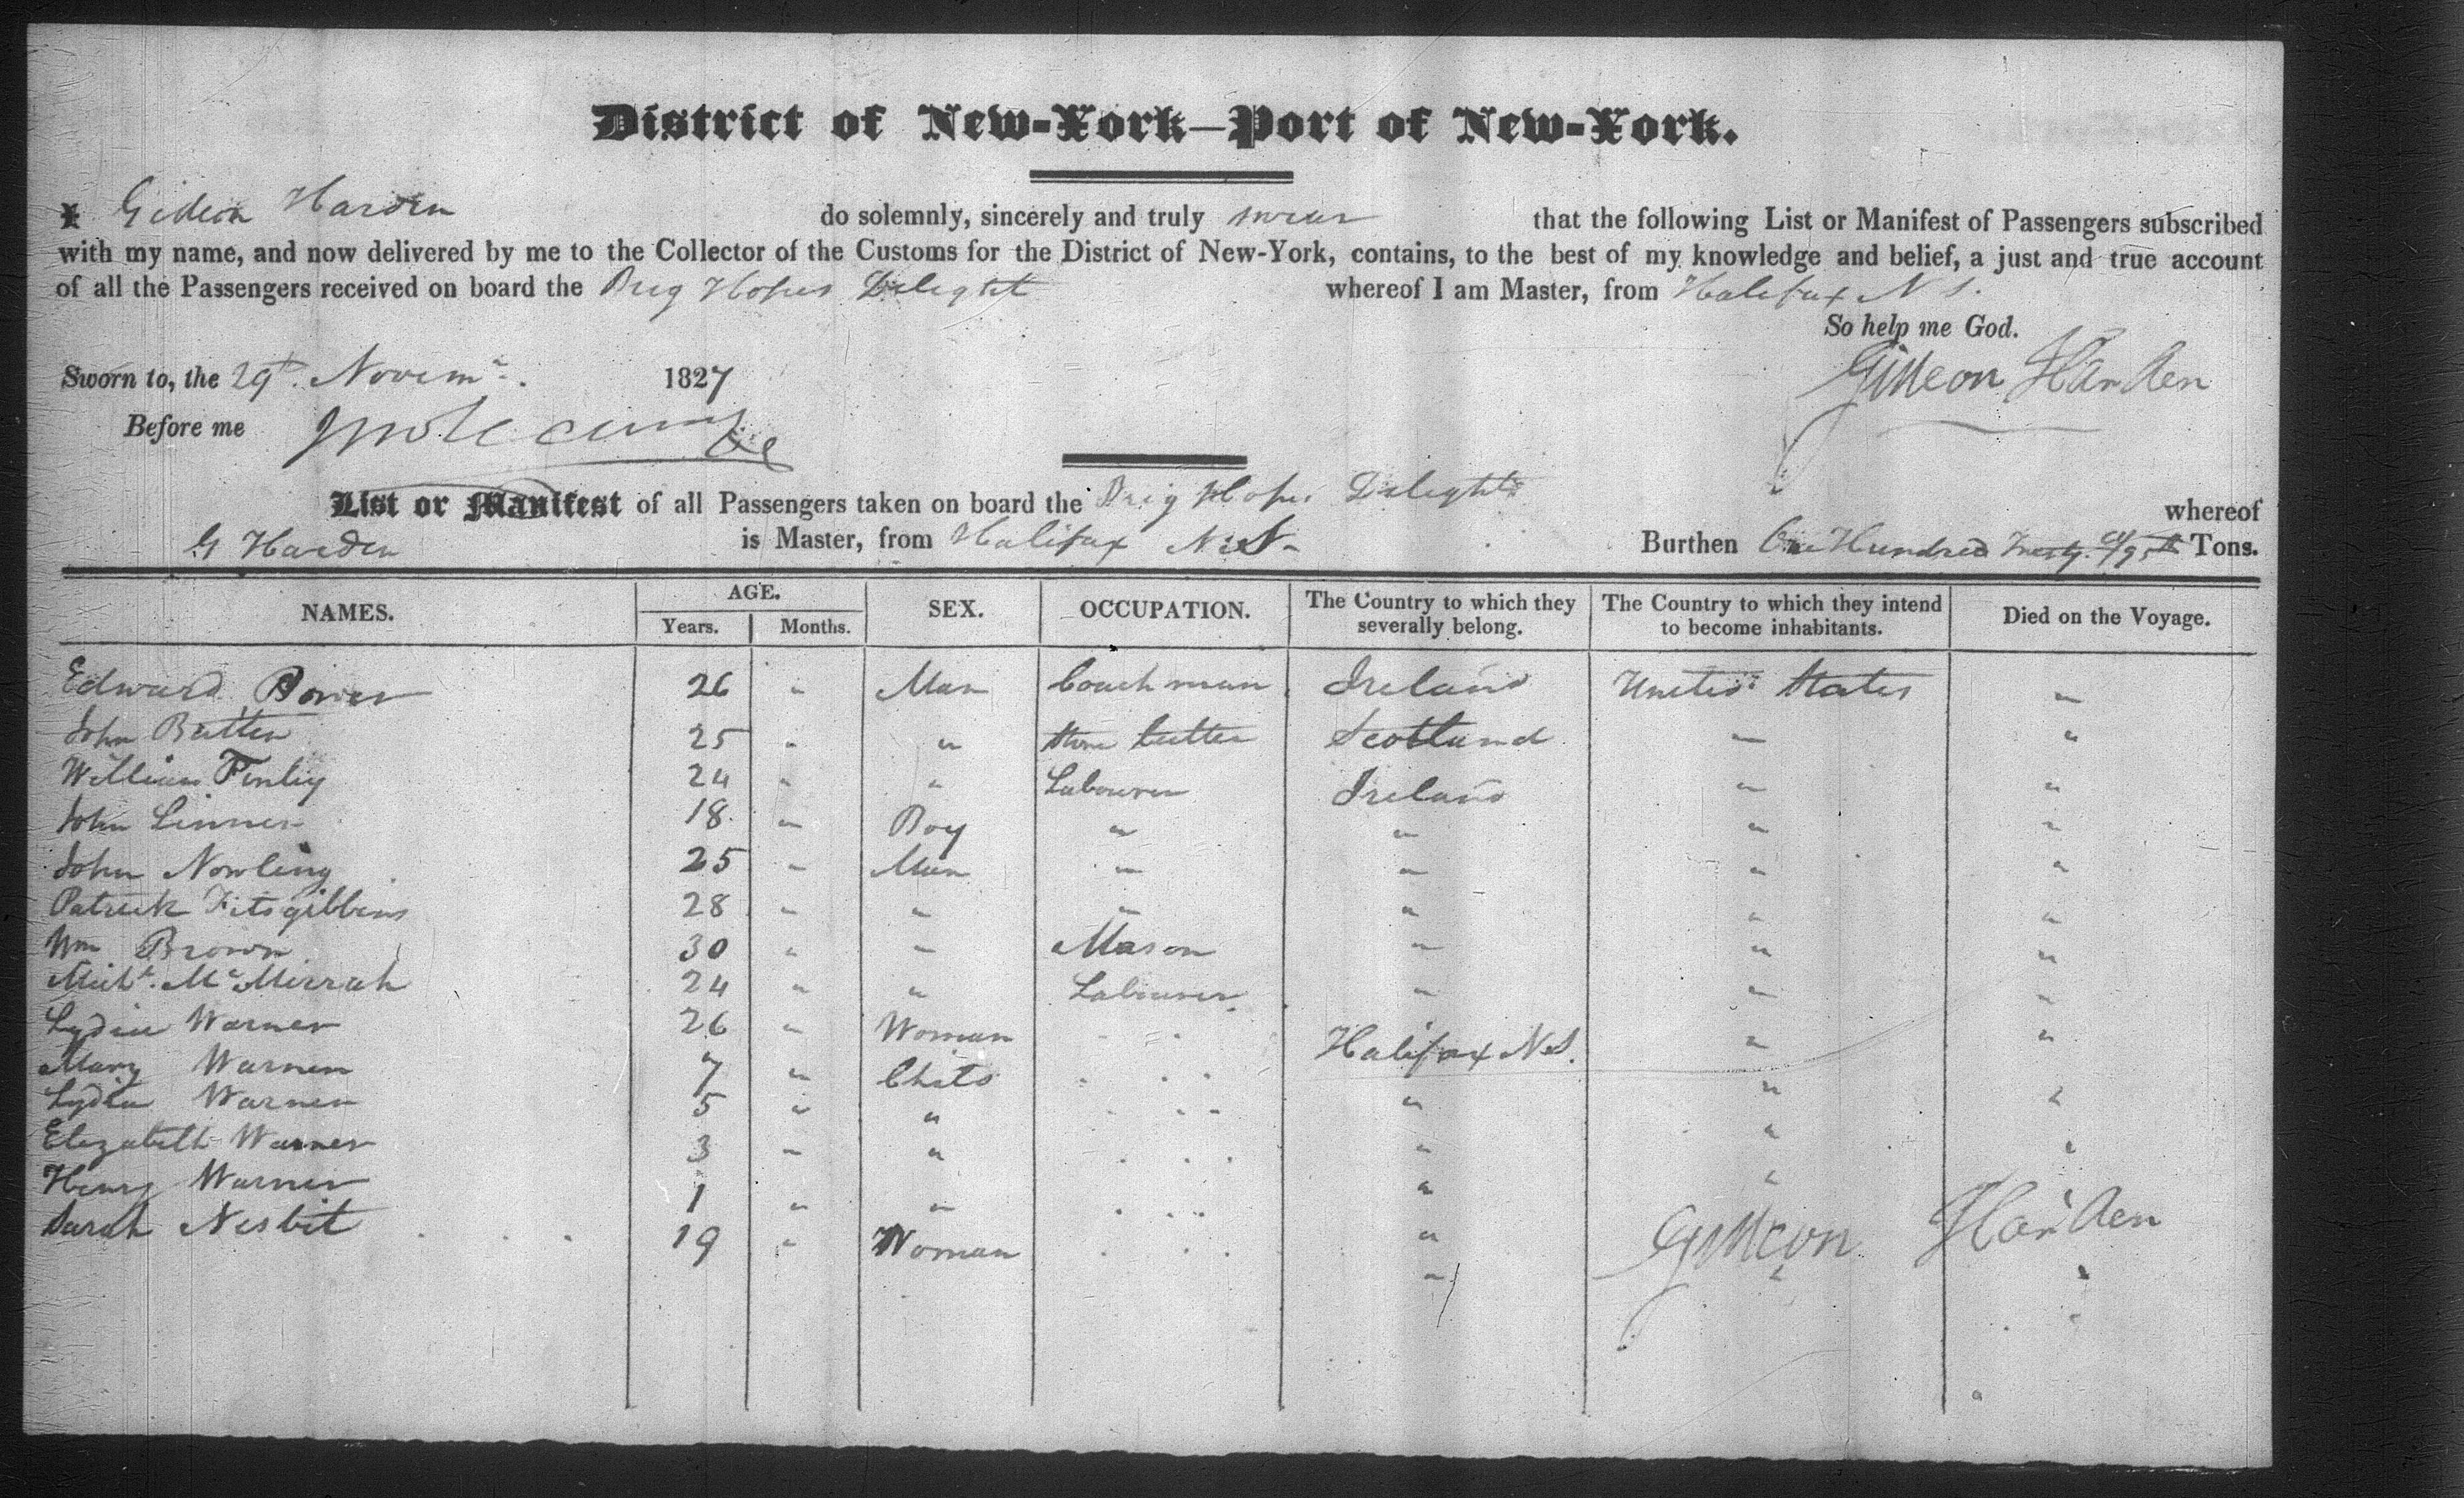 District of New-York—Port of New-York.
I Gideon Harden do solemnly, sincerely and truly swear that the following List or Manifest of Passengers subscribed
with my name, and now delivered by me to the Collector of the Customs for the District of New-York, contains, to the best of my knowledge and belief, a just and true account
of all the Passengers received on board the Brig Hopes Delight whereof I am Master, from Halifax N S.
So help me God.
Sworn to, the 29th. Novemr. 1827 Gideon Harden
Before me
List or Manifest of all Passengers taken on board the Brig Hopes Delight whereof
G Harden is Master, from Halifax N.S. Burthen One Hundred Tons.
NAMES. AGE. SEX. OCCUPATION. The Country to which they severally belong. The Country to which they intend to become inhabitants. Died on the Voyage.
Years. Months.
Edward Power 26 " Man Coachman Ireland United States "
John Britten 25 " " Stone Cutter Scotland " "
William Finley 24 " " Labourer Ireland " "
John Linner 18 " Boy " " " "
John Nowling 25 " Man " " " "
Patrick Fitsgibbins 28 " " " " " "
Wm Brown 30 " " Mason " " "
Michl. McMurrah 24 " " Labourer " " "
Lydia Warner 26 " Woman Halifax N.S. " "
Mary Warner 7 " Child " " "
Lydia Warner 5 " " " " "
Elizabeth Warner 3 " " " " "
Henry Warner 1 " " "
Sarah Nesbit 19 " Woman "
Gideon Harden